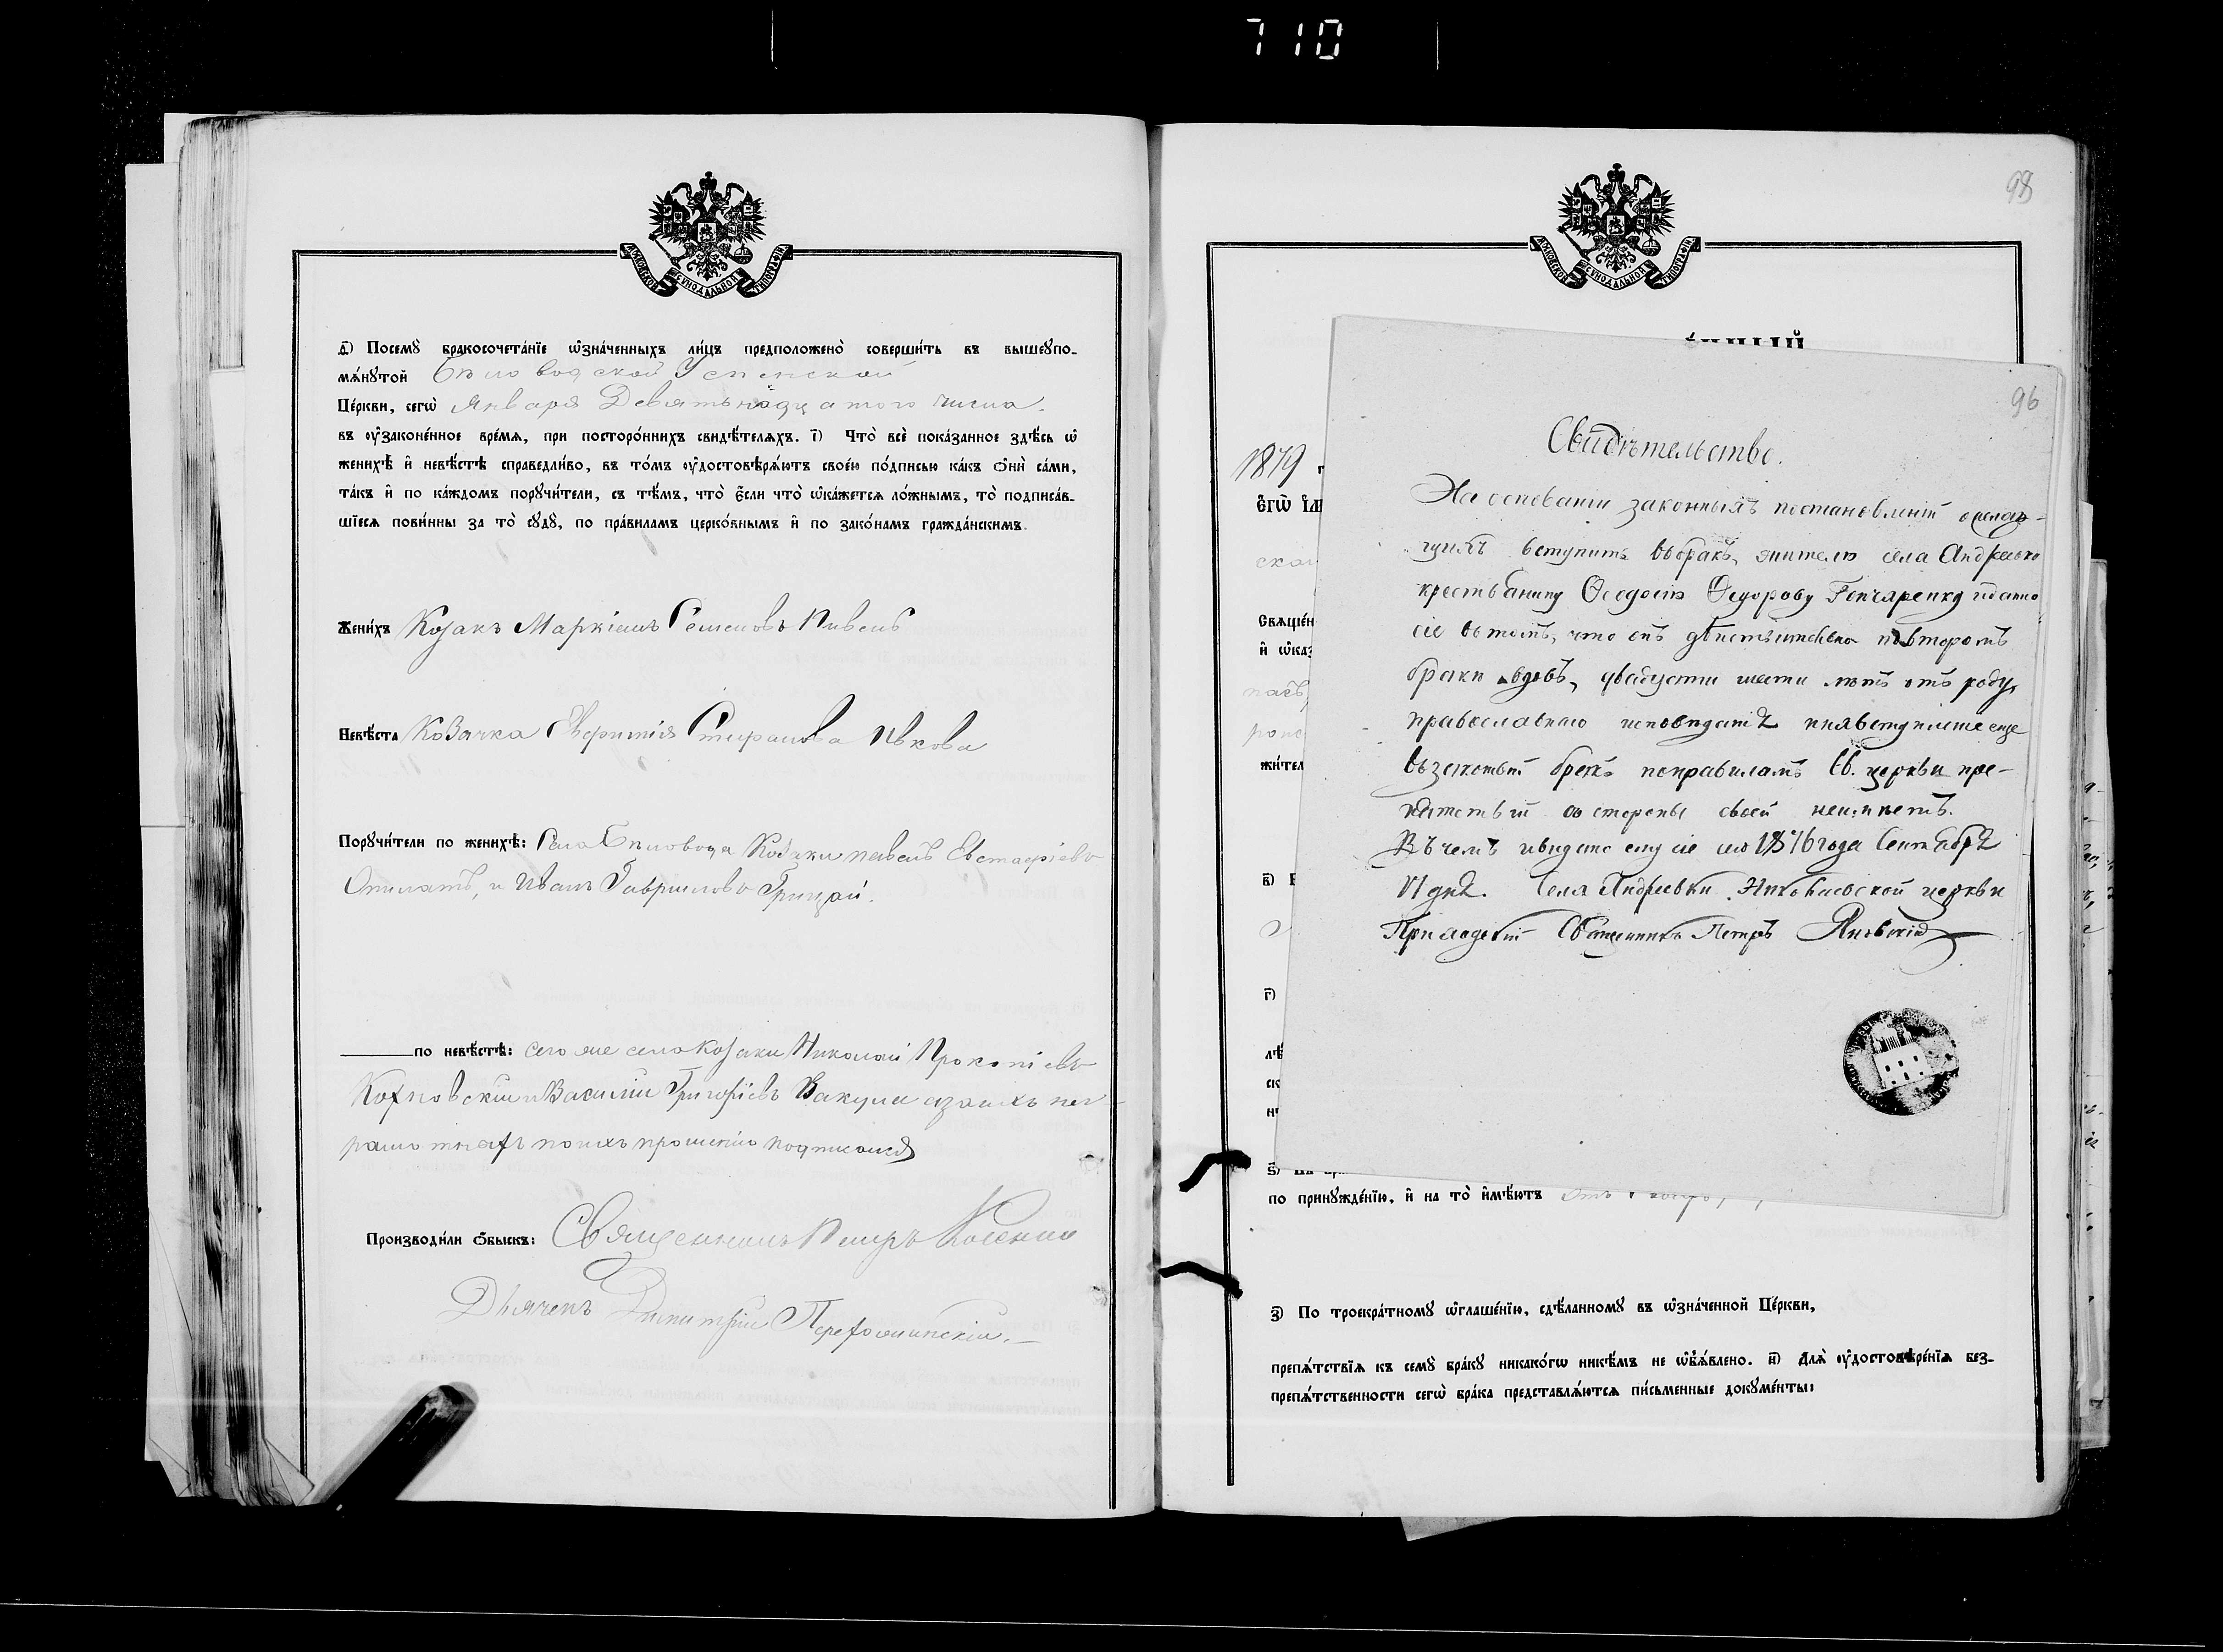 710
МОСКОВСКОЙ СѴНОДАЛЬНОЙ ТИПОГРАФІИ
д҃) Посемꙋ бракосочета́нїе ѡ҆зна́ченныхъ ли́цъ предположено̀ соверши́ть въ вышеꙋпо-
мѧ́нꙋтой Бѣловодской Успенской
Це́ркви, сегѡ̀ Января Девятьнадцатого числа.
въ ᲂу҆законе́нное вре́мѧ, при посторо́ннихъ свидѣ́телѧхъ. і҃) Что̀ всѐ пока́занное здѣ́сь ѡ҆
женихѣ̀ и҆ невѣ́стѣ справедли́во, въ то́мъ ᲂу҆достовѣрѧ́ютъ своею по́дписью ка́къ ѻ҆нѝ са́ми,
та́къ и҆ по ка́ждомъ порꙋчи́тели, съ тѣ́мъ, что̀ є҆́сли что̀ ѡ҆ка́жетсѧ ло́жнымъ, то̀ подписа́в-
шїесѧ пови́нны за то̀ сꙋдꙋ̀, по пра́виламъ церко́внымъ и҆ по зако́намъ гражда́нскимъ.
Жени́хъ Козакъ Маркіанъ Семеновъ Пивень
Невѣ́ста Козачка Евфимія Ивкова
Порꙋчи́тели по женихѣ̀: Села Бѣловода Козаки Павелъ Евстафіевъ
и Иванъ Гавриловъ Грицай.
по невѣ́стѣ: сего же села Козаки Николай Прокопіевъ
и Василій Григоріевъ Вакула а за ихъ нег-
рамотныхъ по ихъ прошенію подписался
Производи́ли ѻ҆́быскъ: Священникъ Петръ
Дьячекъ Димитрій
98
МОСКОВСКОЙ СѴНОДАЛЬНОЙ ТИПОГРАФІИ
1879 г
є҆гѡ̀ и҆м
ской
Свѧще́н
и҆ ѡ҆каз
жи́тел
96
Свидѣтельство.
На основаніи законныхъ постановленій о желаю-
щихъ вступить въ бракъ, жителю села Андреевки
крестьянину Феодосію Федорову Гончаренку идано
сіе въ томъ, что онъ дѣйствительно по второмъ
бракѣ вдовъ, двадцати шести лѣтъ отъ роду,
православнаго исповѣданія и на вступленіе еще
въ законный бракъ по правиламъ Св. церкви пре-
пятствій со стороны своей неимѣетъ.
Въ чемъ и видано ему сіе 1876 года Сентября
VI дня. Села Андреевки Николаевской церкви
Приходскій Священникъ Петръ
в҃)
г҃)
по принꙋжде́нїю, и҆ на то̀ и҆мѣ́ютъ отъ
з҃) По троекра́тномꙋ ѡ҆глаше́нїю, сдѣ́ланномꙋ въ ѡ҆зна́ченной Це́ркви,
препѧ́тствїѧ къ семꙋ̀ бра́кꙋ никако́гѡ никѣ́мъ не ѡ҆б̾ѧ́влено. и҃) Длѧ̀ ᲂу҆достовѣре́нїѧ без-
препѧ́тственности сегѡ̀ бра́ка представлѧ́ютсѧ пи́сьменные докꙋме́нты: